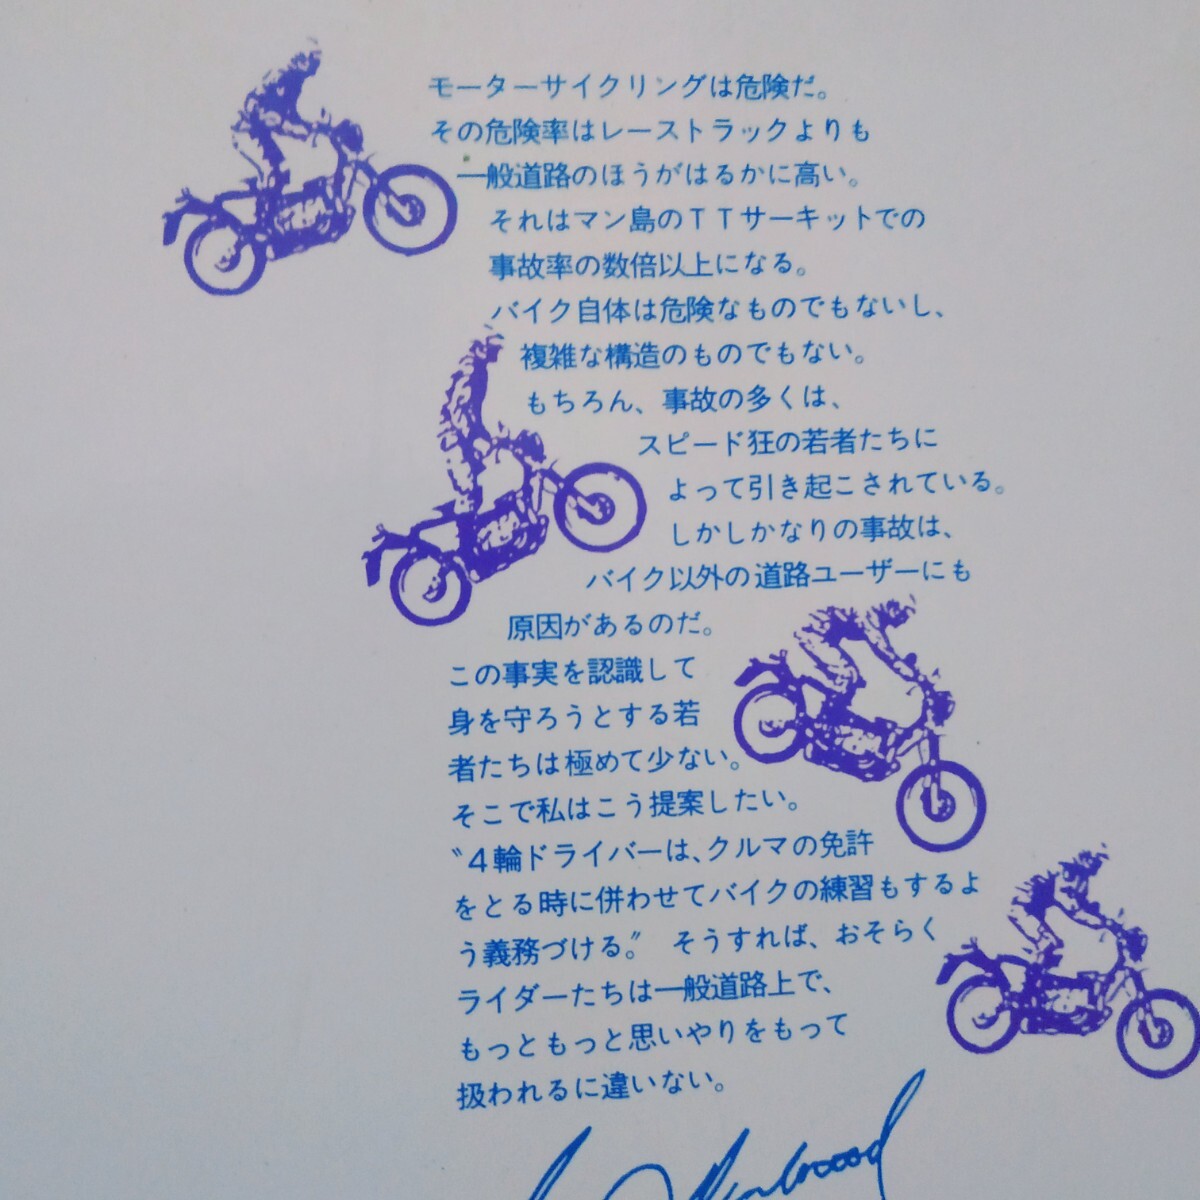 モーターサイクリングは危険だ。
その危険率はレーストラックよりも
一般道路のほうがはるかに高い。
それはマン島のＴＴサーキットでの
事故率の数倍以上になる。
バイク自体は危険なものでもないし、
複雑な構造のものでもない。
もちろん、事故の多くは、
スピード狂の若者たちに
よって引き起こされている。
しかしかなりの事故は、
バイク以外の道路ユーザーにも
原因があるのだ。
この事実を認識して
身を守ろうとする若
者たちは極めて少ない。
そこで私はこう提案したい。
〝４輪ドライバーは、クルマの免許
をとる時に併わせてバイクの練習もするよ
う義務づける〟 そうすれば、おそらく
ライダーたちは一般道路上で、
もっともっと思いやりをもって
扱われるに違いない。